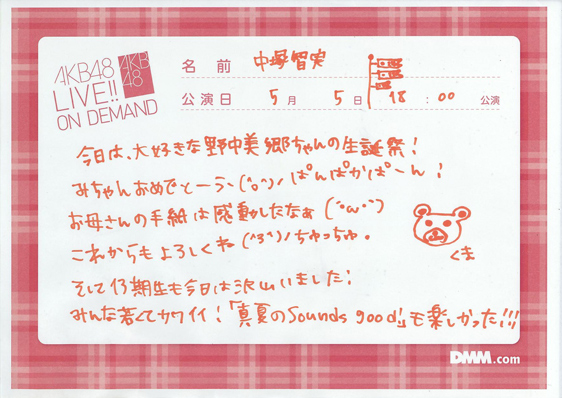 AKB48
LIVE!!
ON DEMAND
AKB
48
名前 中塚智実
公演日 5月 5日 18:00 公演
今日は、大好きな野中美郷ちゃんの生誕祭!
みちゃんおめでとーう、(^o^)ノ ぱんぱかぱーん!
お母さんの手紙は感動したなぁ(´・ω・`)
これからもよろしくね(^3^)ノちゅっちゅ。
くま
そして13期生も今日は沢山いました!
みんな若くてカワイイ!「真夏のSounds good!」も楽しかった!!!
DMM.com